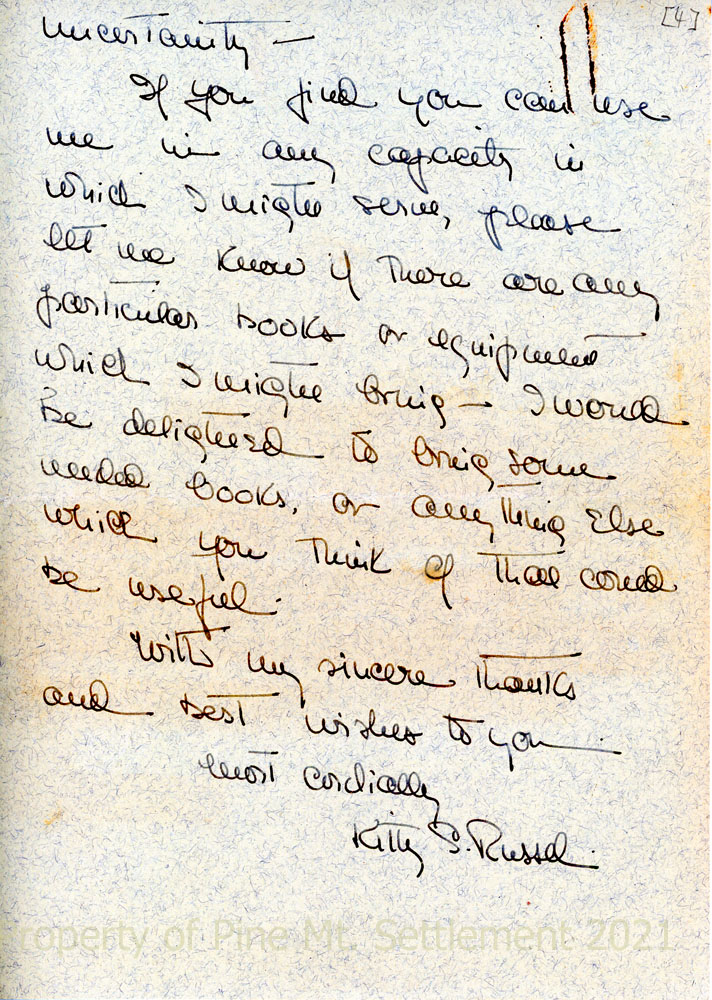 [4]
uncertainty —
If you find you can use
me in any capacity in
which I might serve, please
let me know if there are any
particular books or equipment
which I might bring — I would
be delighted to bring some
needed books, or anything else
which you think of that could
be useful.
With my sincere thanks
and best wishes to you
most cordially
Kitty S. Russel.
Property of Pine Mt. Settlement 2021